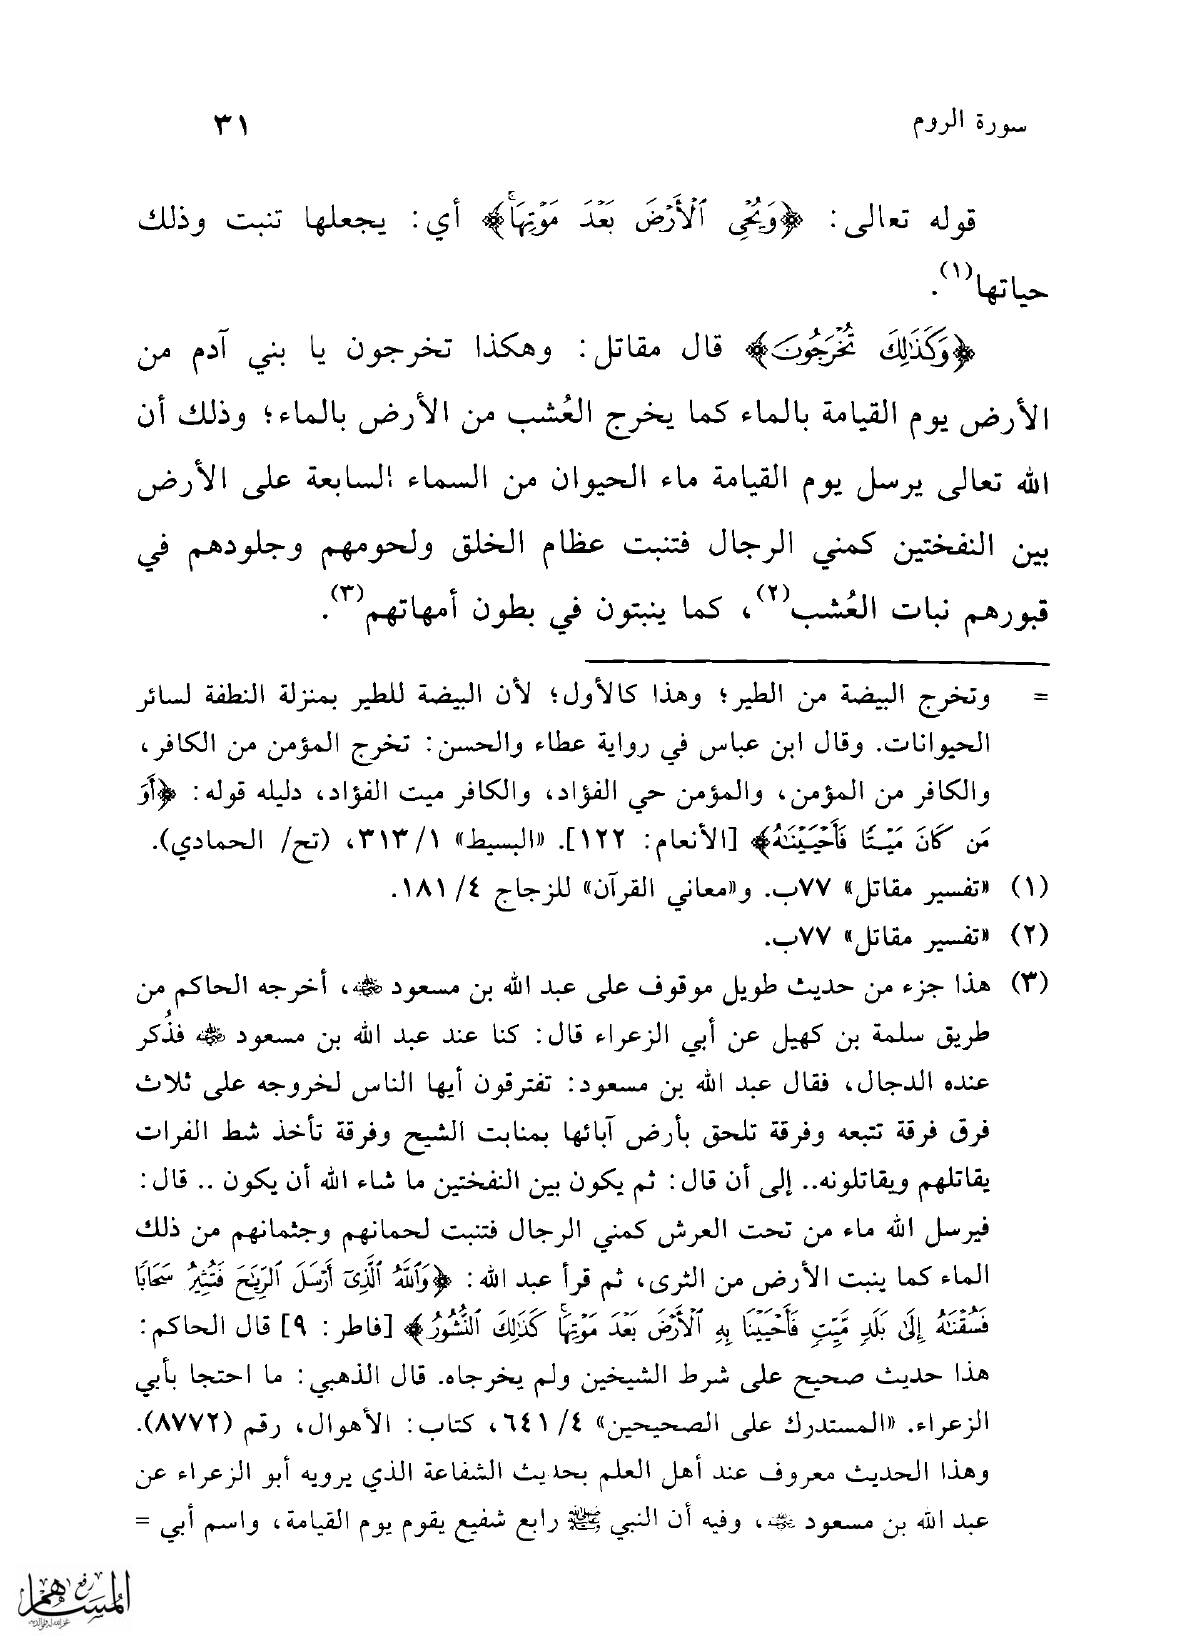 سورة الروم
٣١
قوله تعالى: ﴿وَيُحْيِ ٱلْأَرْضَ بَعْدَ مَوْتِهَا﴾ أي: يجعلها تنبت وذلك
حياتها(١).
﴿وَكَذَٰلِكَ تُخْرَجُونَ﴾ قال مقاتل: وهكذا تخرجون يا بني آدم من
الأرض يوم القيامة بالماء كما يخرج العُشب من الأرض بالماء؛ وذلك أن
الله تعالى يرسل يوم القيامة ماء الحيوان من السماء السابعة على الأرض
بين النفختين كمني الرجال فتنبت عظام الخلق ولحومهم وجلودهم في
قبورهم نبات العُشب(٢)، كما ينبتون في بطون أمهاتهم(٣).
= وتخرج البيضة من الطير؛ وهذا كالأول؛ لأن البيضة للطير بمنزلة النطفة لسائر
الحيوانات. وقال ابن عباس في رواية عطاء والحسن: تخرج المؤمن من الكافر،
والكافر من المؤمن، والمؤمن حي الفؤاد، والكافر ميت الفؤاد، دليله قوله: ﴿أَوَ
مَن كَانَ مَيْتًا فَأَحْيَيْنَٰهُ﴾ [الأنعام: ١٢٢]. «البسيط» ٣١٣/١، (تح/ الحمادي).
(١) «تفسير مقاتل» ٧٧ب. و«معاني القرآن» للزجاج ٤/ ١٨١.
(٢) «تفسير مقاتل» ٧٧ب.
(٣) هذا جزء من حديث طويل موقوف على عبد الله بن مسعود ﵁، أخرجه الحاكم من
طريق سلمة بن كهيل عن أبي الزعراء قال: كنا عند عبد الله بن مسعود ﵁ فذُكر
عنده الدجال، فقال عبد الله بن مسعود: تفترقون أيها الناس لخروجه على ثلاث
فرق فرقة تتبعه وفرقة تلحق بأرض آبائها بمنابت الشيح وفرقة تأخذ شط الفرات
يقاتلهم ويقاتلونه.. إلى أن قال: ثم يكون بين النفختين ما شاء الله أن يكون .. قال:
فيرسل الله ماء من تحت العرش كمني الرجال فتنبت لحمانهم وجثمانهم من ذلك
الماء كما ينبت الأرض من الثرى، ثم قرأ عبد الله: ﴿وَٱللَّهُ ٱلَّذِىٓ أَرْسَلَ ٱلرِّيَٰحَ فَتُثِيرُ سَحَابًا
فَسُقْنَٰهُ إِلَىٰ بَلَدٍ مَّيِّتٍ فَأَحْيَيْنَا بِهِ ٱلْأَرْضَ بَعْدَ مَوْتِهَا كَذَٰلِكَ ٱلنُّشُورُ﴾ [فاطر: ٩] قال الحاكم:
هذا حديث صحيح على شرط الشيخين ولم يخرجاه. قال الذهبي: ما احتجا بأبي
الزعراء. «المستدرك على الصحيحين» ٤/ ٦٤١، كتاب: الأهوال، رقم (٨٧٧٢).
وهذا الحديث معروف عند أهل العلم بحديث الشفاعة الذي يرويه أبو الزعراء عن
عبد الله بن مسعود ﵁، وفيه أن النبي ﷺ رابع شفيع يقوم يوم القيامة، واسم أبي =